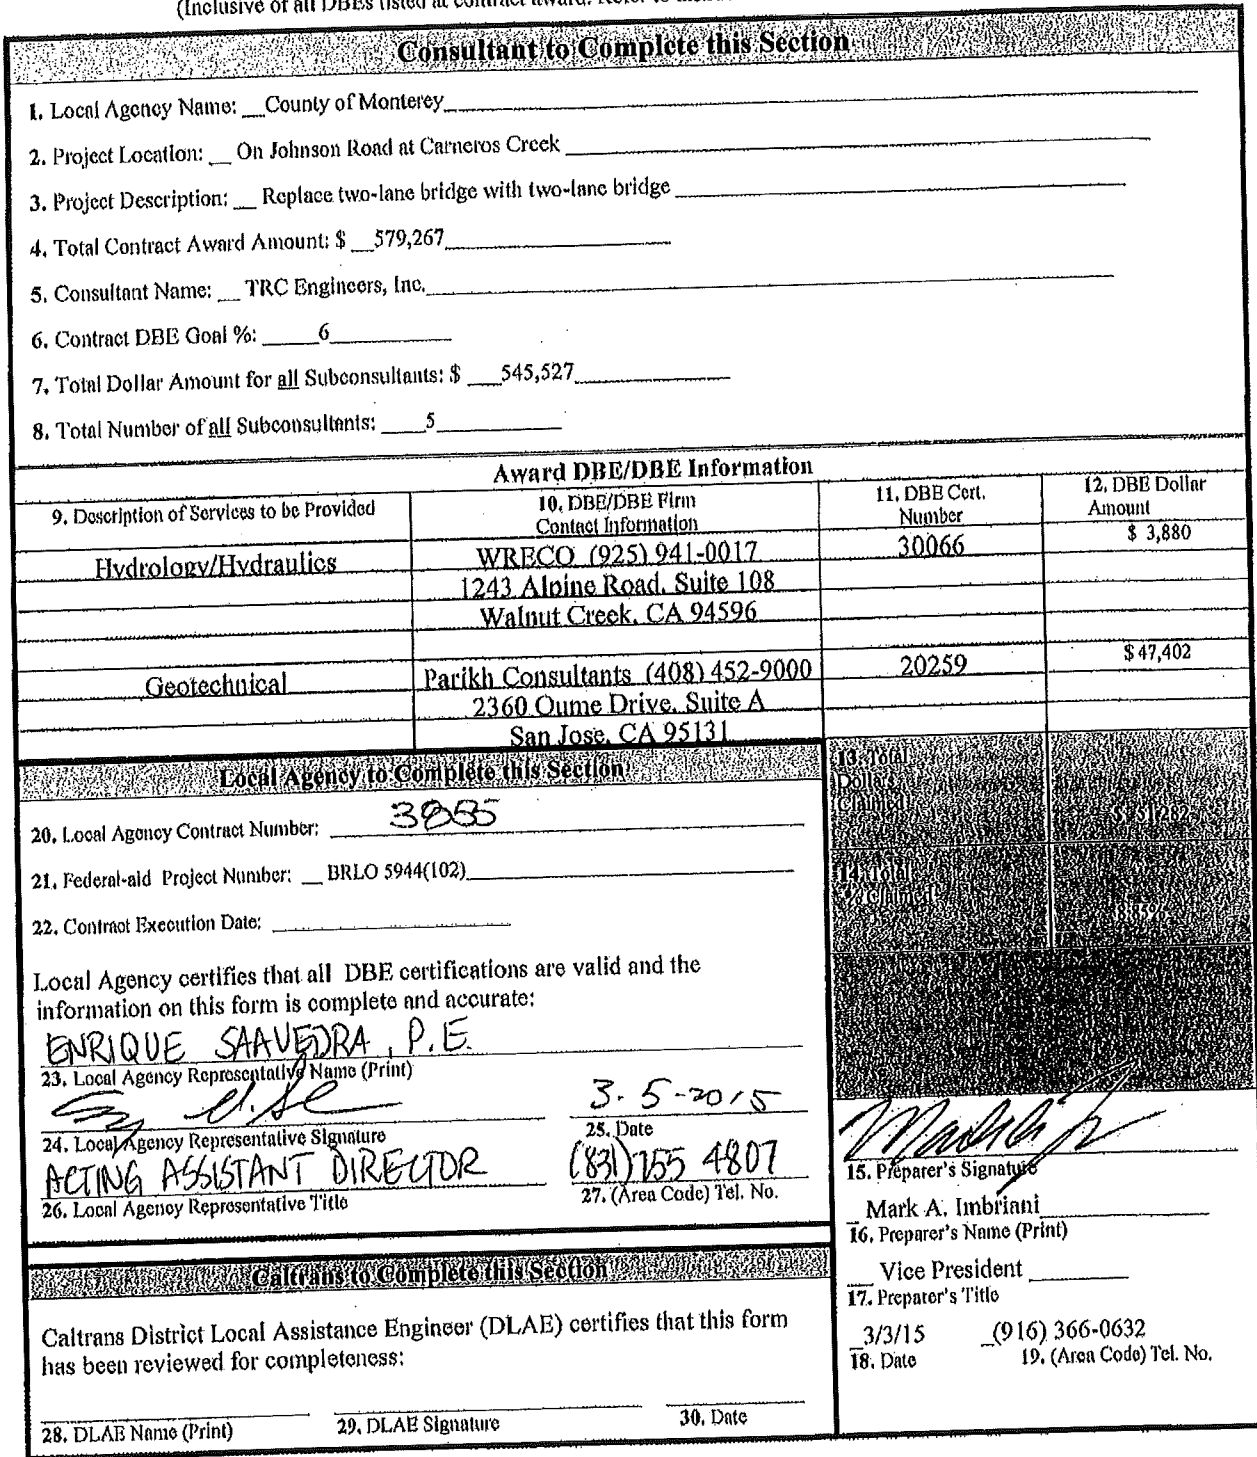 (Inclusive of all DBEs listed at contract award. Refer to
Consultant to Complete this Section
1. Local Agency Name: __County of Monterey
2. Project Location: __ On Johnson Road at Carneros Creek
3. Project Description: __ Replace two-lane bridge with two-lane bridge
4. Total Contract Award Amount: $ __579,267
5. Consultant Name: __ TRC Engineers, Inc.
6. Contract DBE Goal %: _____6
7. Total Dollar Amount for all Subconsultants: $ ___545,527
8. Total Number of all Subconsultants: ____5
Award DBE/DBE Information
9. Description of Services to be Provided 10. DBE/DBE Firm Contact Information 11. DBE Cert. Number 12. DBE Dollar Amount
Hydrology/Hydraulics WRECO (925) 941-0017 30066 $ 3,880
1243 Alpine Road, Suite 108
Walnut Creek, CA 94596
Geotechnical Parikh Consultants (408) 452-9000 20259 $ 47,402
2360 Qume Drive, Suite A
San Jose, CA 95131
Local Agency to Complete this Section
20. Local Agency Contract Number:
21. Federal-aid Project Number: __ BRLO 5944(102)
22. Contract Execution Date:
Local Agency certifies that all DBE certifications are valid and the
information on this form is complete and accurate:
ENRIQUE SAAVEDRA, P.E.
23. Local Agency Representative Name (Print)
3-5-2015
24. Local Agency Representative Signature 25. Date
ACTING ASSISTANT DIRECTOR (831) 755 4807
26. Local Agency Representative Title 27. (Area Code) Tel. No.
Caltrans to Complete this Section
Caltrans District Local Assistance Engineer (DLAE) certifies that this form
has been reviewed for completeness:
28. DLAE Name (Print) 29. DLAE Signature 30. Date
13. Total
Dollars
Claimed
$ 51,282
14. Total
% Claimed
15. Preparer's Signature
Mark A. Imbriani
16. Preparer's Name (Print)
Vice President
17. Preparer's Title
3/3/15 (916) 366-0632
18. Date 19. (Area Code) Tel. No.